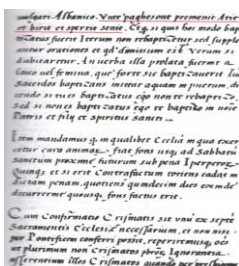 vulgari Albanico. Vnte paghesont premenit Atit
et birit et spertit senit. Et si quis hoc modo bap
tizatus fuerit iterum non rebaptizetur sed supple
antur orationes et verum si
dubitaretur. An verba illa prolata fuerint a
laico vel femina, que forte sic baptizaverit
sacerdos baptizans mittat aquam in puerum, di
cendo si tu es baptizatus ego non te rebaptizo,
sed si non es baptizatus ego te baptizo in nomine
Patris et filij et spiritus sancti.
Item mandamus q. in qualibet Ecclesia in qua exer
cetur cura animar. fiat fons usq. ad Sabbatum
Sanctum proxime futurum sub pena Iperperor.
Quinq. et si erit Contrafactum totiens cadat in
dictam penam, quotiens quindecim dies
decurrerint quousq. fons factus erit.
Cum Confirmatio Crismatis sit unum ex septem
Sacramentis Ecclesie necessarium, et non nisi
per Pontificem conferri possit, reperirimusq.
et plurimum non Crismatos propter Ignorantia
illos Crismatos quando per